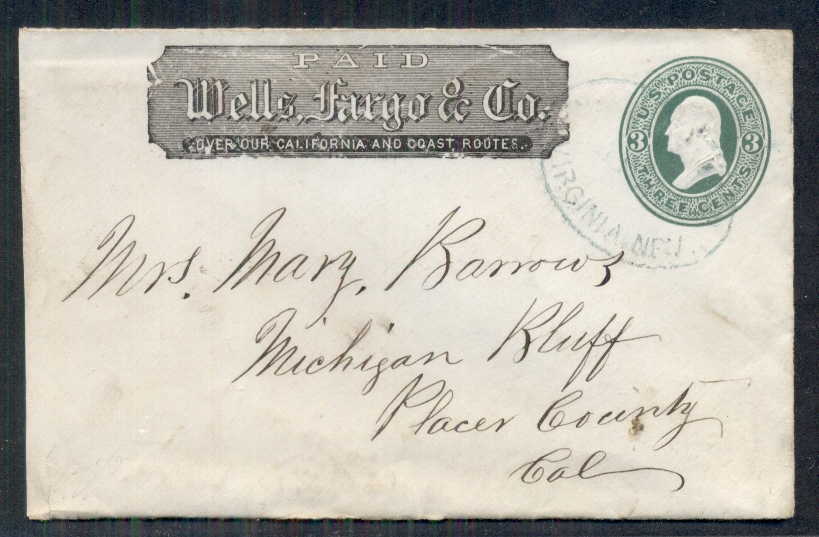 PAID
Wells, Fargo & Co.
OVER OUR CALIFORNIA AND COAST ROUTES.
U.S. POSTAGE
3 3
THREE CENTS
VIRGINIA NEV.
Mrs. Mary, Barrows
Michigan Bluff
Placer County
Cal